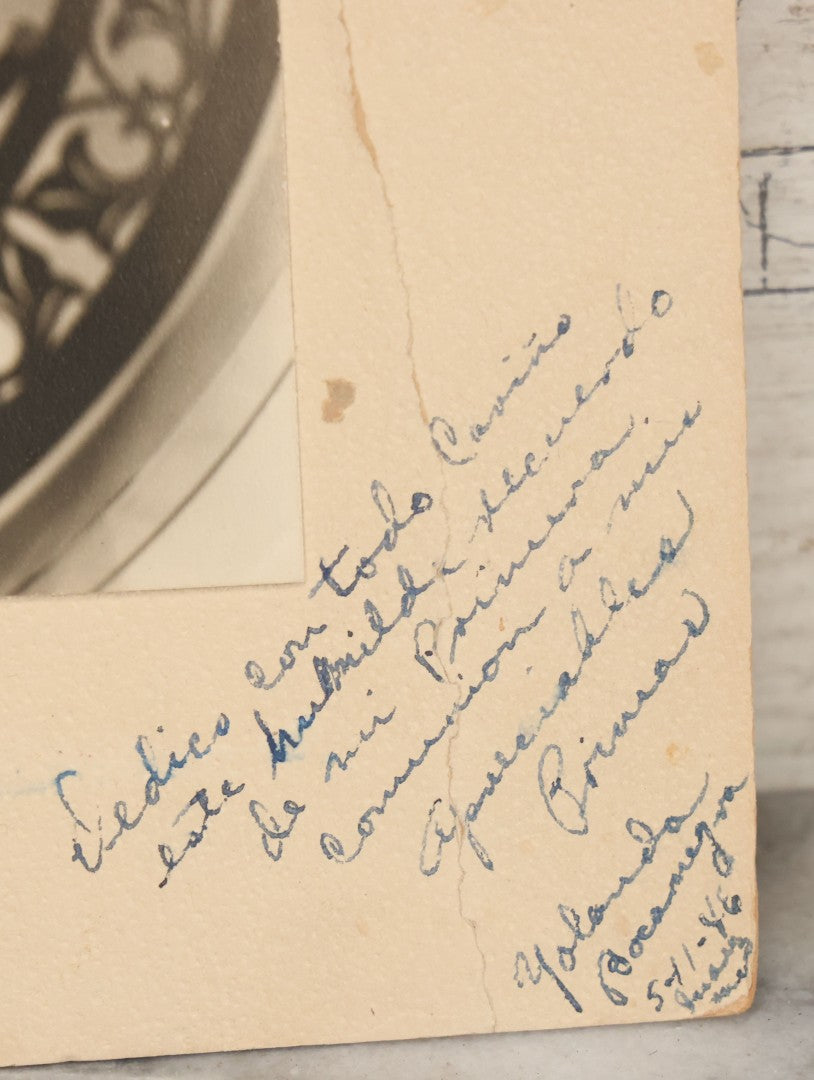 Dedico con todo Cariño
este humilde recuerdo
de mi Primera
comunion a mis
Apreciables
Primas
Yolanda
Bocanegra
5-11-46
Juarez
Mex